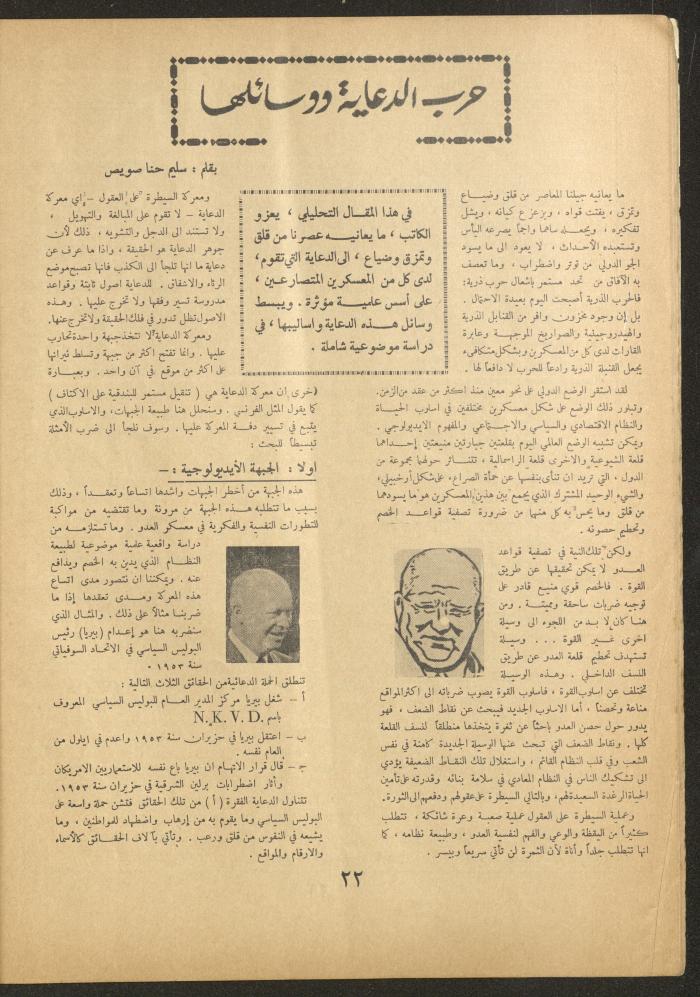 حرب الدعاية ووسائلها
بقلم : سليم حنا صويص
ما يعانيه جيلنا المعاصر من قلق وضياع
وتمزق ، يفتت قواه ، ويزعزع كيانه ، ويشل
تفكيره ، ويجعله ساهما واجماً يصرعه اليأس
وتستعبده الأحداث ، لا يعود الى ما يسود
الجو الدولي من توتر واضطراب ، وما تعصف
به الآفاق من تحد مستمر باشعال حرب ذرية:
فالحرب الذرية أصبحت اليوم بعيدة الاحتمال .
بل إن وجود مخزون وافر من القنابل الذرية
والهيدروجينية والصواريخ الموجهة وعابرة
القارات لدى كل من المعسكرين وبشكل متكافىء
يجعل القنبلة الذرية رادعاً للحرب لا دافعاً لها .
لقد استقر الوضع الدولي على نحو معين منذ اكثر من عقد من الزمن.
وتبلور ذلك الوضع على شكل معسكرين مختلفين في اسلوب الحياة
والنظام الاقتصادي والسياسي والاجتماعي والمفهوم الايدولوجي .
ويمكن تشبيه الوضع العالمي اليوم بقلعتين جبارتين منيعتين إحداهما
قلعة الشيوعية والاخرى قلعة الراسمالية ، تتناثر حولهما مجموعة من
الدول ، التي تريد ان تنأى بنفسها عن حمأة الصراع على شكل أرخبيلي،
والشيء الوحيد المشترك الذي يجمع بين هذين المعسكرين هو ما يسودهما
من قلق وما يحس به كل منهما من ضرورة تصفية قواعد الخصم
وتحطيم حصونه .
ولكن تلك النية في تصفية قواعد
العدو لا يمكن تحقيقها عن طريق
القوة . فالخصم قوي منيع قادر على
توجيه ضربات ساحقة ومميتة . ومن
هنا كان لا بد من اللجوء الى وسيلة
اخرى غير القوة ... وسيلة
تستهدف تحطيم قلعة العدو عن طريق
النسف الداخلي . وهذه الوسيلة
تختلف عن اسلوب القوة ، فاسلوب القوة يصوب ضرباته الى اكثر المواقع
مناعة وتحصناً ، أما الاسلوب الجديد فيبحث عن نقاط الضعف ، فهو
يدور حول حصن العدو باحثاً عن ثغرة يتخذها منطلقاً لنسف القلعة
كلها . ونقاط الضعف التي تبحث عنها الوسيلة الجديدة كامنة في نفس
الشعب وفي قلب النظام القائم ، واستغلال تلك النقاط الضعيفة يؤدي
الى تشكيك الناس في النظام المعادي في سلامة بنائه وقدرته على تأمين
الحياة الرغدة السعيدة لهم، وبالتالي السيطرة على عقولهم ودفعهم الى الثورة.
وعملية السيطرة على العقول عملية صعبة وعرة شائكة ، تتطلب
كثيراً من اليقظة والوعي والفهم لنفسية العدو ، وطبيعة نظامه ، كما
انها تتطلب جلداً وأناة لأن الثمرة لن تأتي سريعاً وبيسر .
في هذا المقال التحليلي ، يعزو
الكاتب ، ما يعانيه عصرنا من قلق
وتمزق وضياع ، الى الدعاية التي تقوم ،
لدى كل من المعسكرين المتصارعين ،
على أسس علمية مؤثرة . ويبسط
وسائل هذه الدعاية واساليبها ، في
دراسة موضوعية شاملة .
ومعركة السيطرة على العقول – اي معركة
الدعاية – لا تقوم على المبالغة والتهويل ،
ولا تستند الى الدجل والتشويه ، ذلك لأن
جوهر الدعاية هو الحقيقة ، واذا ما عرف عن
دعاية ما انها تلجأ الى الكذب فانها تصبح موضع
الرثاء والاشفاق . للدعاية اصول ثابتة وقواعد
مدروسة تسير وفقها ولا تخرج عليها . وهذه
الاصول تظل تدور في فلك الحقيقة ولا تخرج عنها.
ومعركة الدعاية لا تتخذ جبهة واحدة تحارب
عليها . وانما تفتح اكثر من جبهة وتسلط نيرانها
على اكثر من موقع في آن واحد . وبعبارة
اخرى إن معركة الدعاية هي ( تنقيل مستمر للبندقية على الاكتاف )
كما يقول المثل الفرنسي . وسنحلل هنا طبيعة الجبهات، والاسلوب الذي
يتبع في تسيير دفة المعركة عليها . وسوف نلجأ الى ضرب الأمثلة
تبسيطاً للبحث :
اولا : الجبهة الأيديولوجية : –
هذه الجبهة من أخطر الجبهات واشدها اتساعاً وتعقداً ، وذلك
بسبب ما تتطلبه هذه الجبهة من مرونة وما تقتضيه من مواكبة
للتطورات النفسية والفكرية في معسكر العدو . وما تستلزمه من
دراسة واقعية علمية موضوعية لطبيعة
النظام الذي يدين به الخصم ويدافع
عنه . ويمكننا ان نتصور مدى اتساع
هذه المعركة ومدى تعقدها إذا ما
ضربنا مثالاً على ذلك . والمثال الذي
سنضربه هنا هو إعدام (بيريا) رئيس
البوليس السياسي في الاتحاد السوفياتي
سنة ١٩٥٣ .
تنطلق الحملة الدعائية من الحقائق الثلاث التالية :
أ – شغل بيريا مركز المدير العام للبوليس السياسي المعروف
باسم N. K. V. D.
ب – اعتقل بيريا في حزيران سنة ١٩٥٣ واعدم في ايلول من
العام نفسه .
ج – قال قرار الاتهام ان بيريا باع نفسه للاستعماريين الامريكان
وأثار اضطرابات برلين الشرقية في حزيران سنة ١٩٥٣.
تتناول الدعاية الفقرة ( أ ) من تلك الحقائق فتشن حملة واسعة على
البوليس السياسي وما يقوم به من إرهاب واضطهاد للمواطنين ، وما
يشيعه في النفوس من قلق ورعب . وتأتي بآلاف الحقائق كالأسماء
والارقام والمواقع .
٢٢